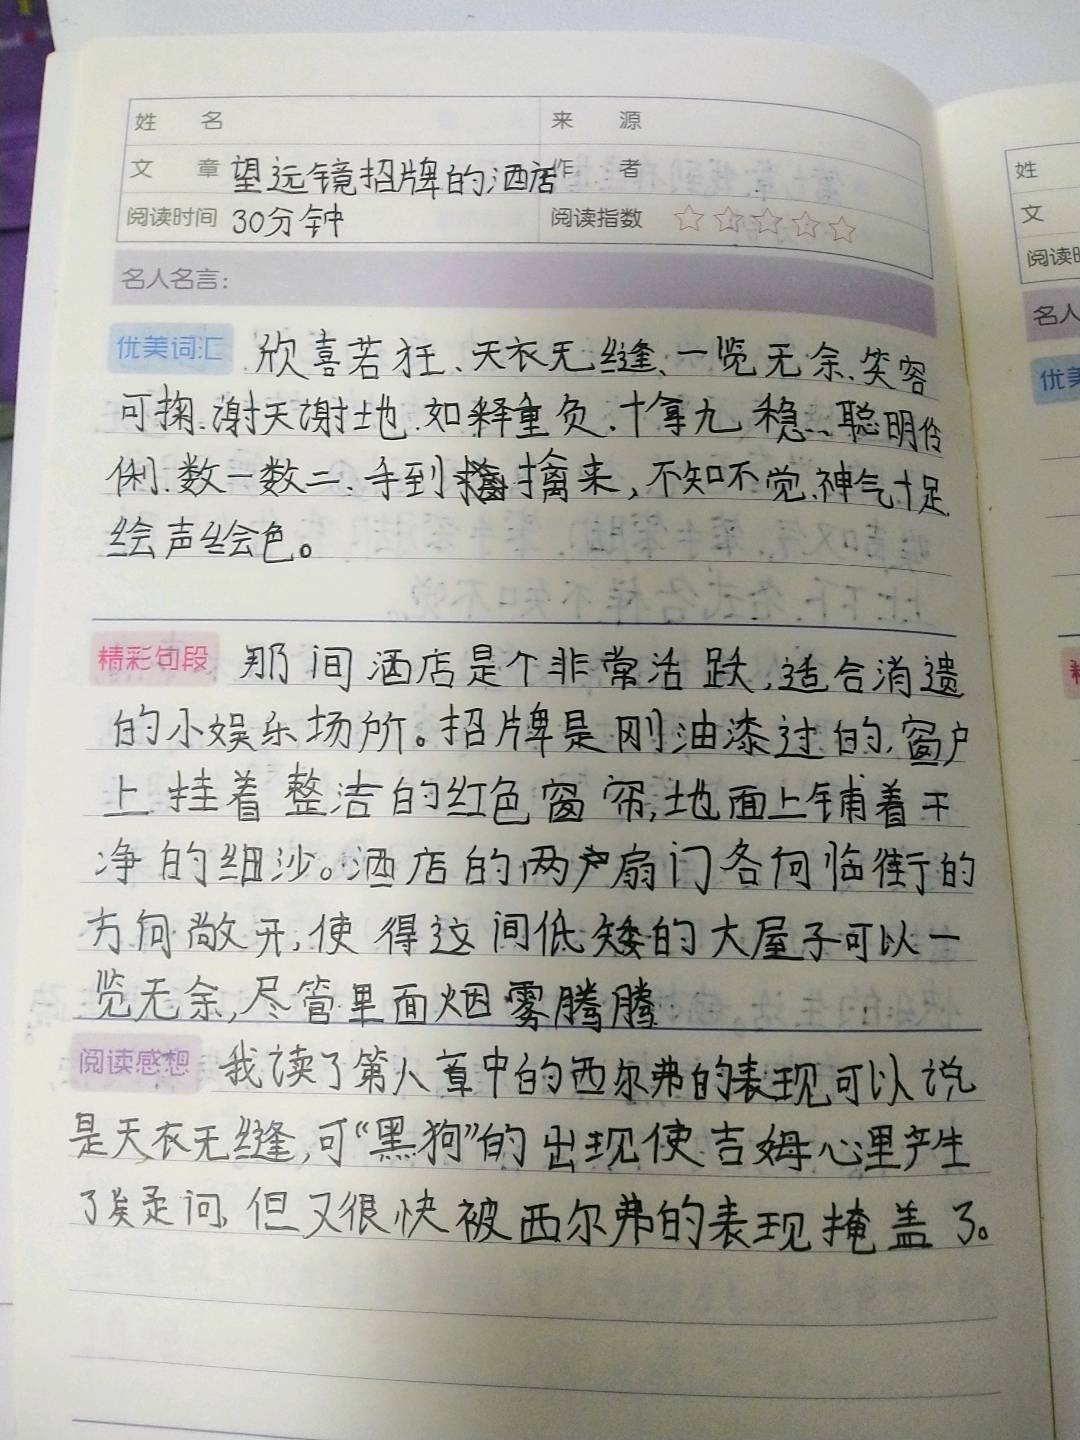 姓 名 来 源
文 章 望远镜招牌的酒店 作 者
阅读时间 30分钟 阅读指数
名人名言：
优美词汇 欣喜若狂、天衣无缝、一览无余、笑容
可掬、谢天谢地、如释重负、十拿九稳、聪明伶
俐、数一数二、手到擒来，不知不觉、神气十足
绘声绘色。
精彩句段 那间酒店是个非常活跃，适合消遗
的小娱乐场所。招牌是刚油漆过的，窗户
上挂着整洁的红色窗帘，地面上铺着干
净的细沙。酒店的两户扇门各向临街的
方向敞开，使得这间低矮的大屋子可以一
览无余，尽管里面烟雾腾腾
阅读感想 我读了第八章中的西尔弗的表现可以说
是天衣无缝，可“黑狗”的出现使吉姆心里产生
了疑问，但又很快被西尔弗的表现掩盖了。
姓
文
阅读时
名人
优美
精